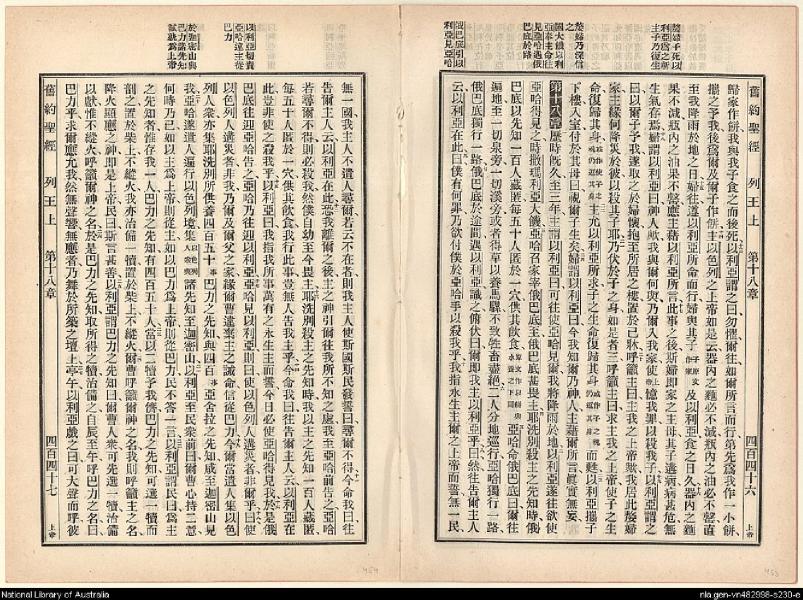 舊約聖經 列王上 第十八章 四百四十六 上帝
歸家作餅我與我子食之而後死以利亞謂之曰勿懼爾往如爾所言而行第先爲我作一小餅
攜之予我後爲爾及爾子作餅主以色列之上帝如是云器內之麵必不減瓶內之油必不罄直
至我降雨於地之日婦往遵以利亞所命而行婦與其子及以利亞食之日久器內之麵
果不減瓶內之油果不罄應主藉以利亞所言此事之後斯婦卽家之主母其子遘病病甚危無
生氣存焉婦謂以利亞曰神人歟我與爾何與乃爾入我家使憶我罪以殺我子以利亞謂之
曰以爾子予我遂取之於婦懷抱至所居之樓置於己牀呼籲主曰主我之上帝歟我居此嫠婦
家主緣何降災於彼以殺其子耶乃伏於子之身如是者三呼籲主曰求主我之上帝使子之生
命復歸其身主允以利亞所求子之生命復歸其身而甦以利亞攜子
下樓入室付於其母曰視爾子生矣婦謂以利亞曰今我知爾乃神人主藉爾所言眞實無妄
第十八章歷時旣久至三年主諭以利亞曰可往使哈見爾我將降雨於地以利亞遂往欲使
亞哈得見之時撒瑪利亞大饑亞哈召家宰俄巴底至俄巴底甚畏主耶洗別殺主之先知時俄
巴底以先知一百人藏匿每五十人於一穴供其飲食亞哈命俄巴底曰爾往
遍地至一切泉旁一切溪旁或者得草以養馬騾不致牲畜盡絕二人分地巡行亞哈獨行一路
俄巴底獨行一路俄巴底於途間遇以利亞識之俯伏曰爾卽我主以利亞乎曰然往告爾主人
云以利亞在此曰僕有何罪乃欲付僕於亞哈手以殺我乎我指永生主爾之上帝而誓無一民
嫠婦子死以利亞爲之祈主子乃復生
嫠婦乃深信之
國大饑以利亞奉主命往見亞哈遇俄巴底於路
俄巴底引以利亞見亞哈
無一國我主人不遣人尋爾若云不在者則我主人使斯國斯民發誓曰尋爾不得今命我曰往
告爾主人云以利亞在此恐我離爾之後主之神引爾往我所不知之處我至亞哈前告之亞哈
若尋爾不得則必殺我然僕自幼至今畏主耶洗別殺主之先知時我以主之先知一百人藏匿
每五十人匿於一穴供其飲食我行此事豈無人告我主乎今命我曰往告爾主人云以利亞在
此豈非使之殺我乎以利亞曰我指我所事萬有之永生主而誓今日必使亞哈得見我於是俄
巴底往迎亞哈告之亞哈乃往迎以利亞亞哈見以利亞則曰使以色列人遘災者非爾乎曰使
以色列人遘災者非我乃爾及爾父之家緣爾曹違棄主之誡命信從巴力今爾當遣人集以色
列人衆亦集耶洗別所供養四百五十事巴力之先知與四百事亞舍拉之先知咸至迦密山見
我亞哈遂遣人遍行以色列境集諸先知至迦密山以利亞至民衆前曰爾曹心持二意
何時乃已如以主爲上帝則從主如以巴力爲上帝則從巴力民不答一言以利亞謂民曰爲主
之先知者惟存我一人巴力之先知有四百五十人當以二犢予我儕巴力之先知可選一犢而
剖之置於柴上不縱火我亦治備一犢置於柴上不縱火爾曹呼籲爾神之名我則呼籲主之名
降火顯應之神卽是上帝民曰斯言甚善以利亞謂巴力之先知曰爾曹人衆可先選一犢治備
以獻惟不縱火呼籲爾神之名於是巴力之先知取所得之犢治備之自辰至午呼巴力之名曰
巴力乎求爾應允我然無聲響無應者乃舞於所築之壇上亭午以利亞戲之曰可大聲而呼彼
以利亞切責亞哈違主從巴力
於迦密山與巴力諸先知試孰爲上帝
舊約聖經 列王上 第十八章 四百四十七 上帝
National Library of Australia
nla.gen-vn482998-s230-e